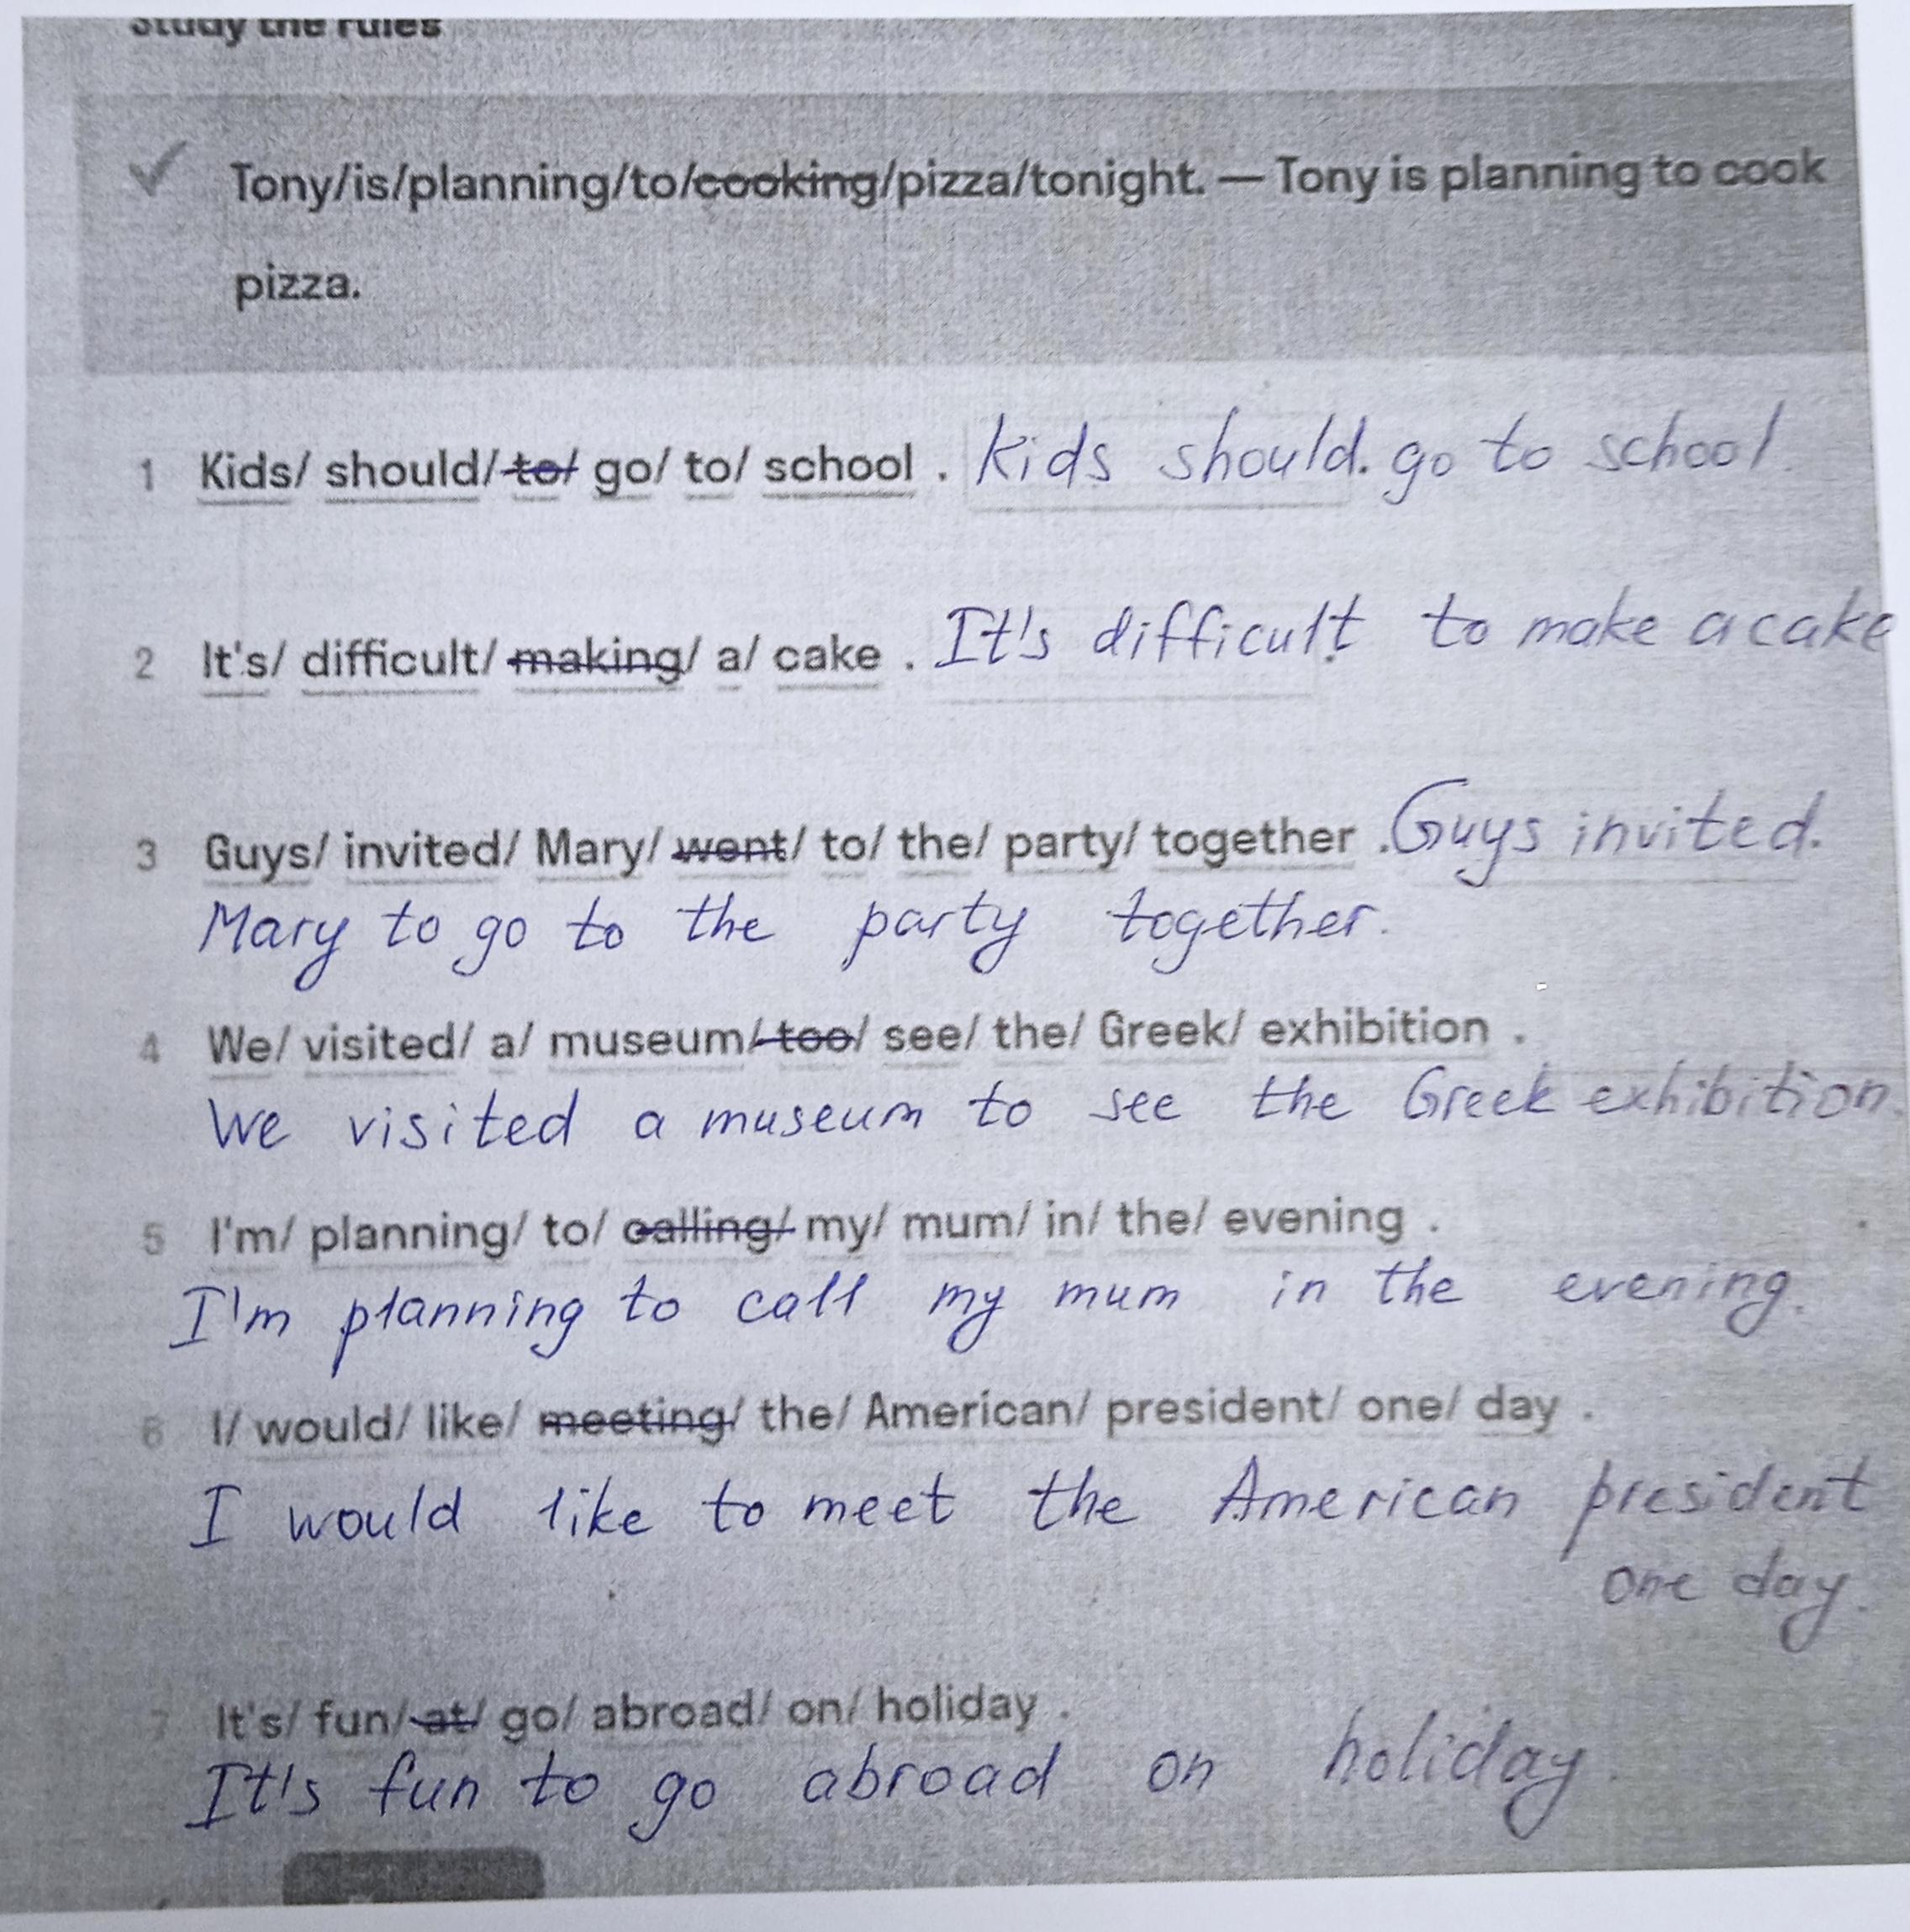 Study the rules
✓ Tony/is/planning/to/cooking/pizza/tonight. — Tony is planning to cook
pizza.
1 Kids/ should/ to/ go/ to/ school . Kids should. go to school.
2 It's/ difficult/ making/ a/ cake . It's difficult to make a cake
3 Guys/ invited/ Mary/ went/ to/ the/ party/ together . Guys invited.
Mary to go to the party together.
4 We/ visited/ a/ museum/ too/ see/ the/ Greek/ exhibition .
We visited a museum to see the Greek exhibition.
5 I'm/ planning/ to/ calling/ my/ mum/ in/ the/ evening .
I'm planning to call my mum in the evening.
6 I/ would/ like/ meeting/ the/ American/ president/ one/ day .
I would like to meet the American president
one day.
7 It's/ fun/ at/ go/ abroad/ on/ holiday .
It's fun to go abroad on holiday.